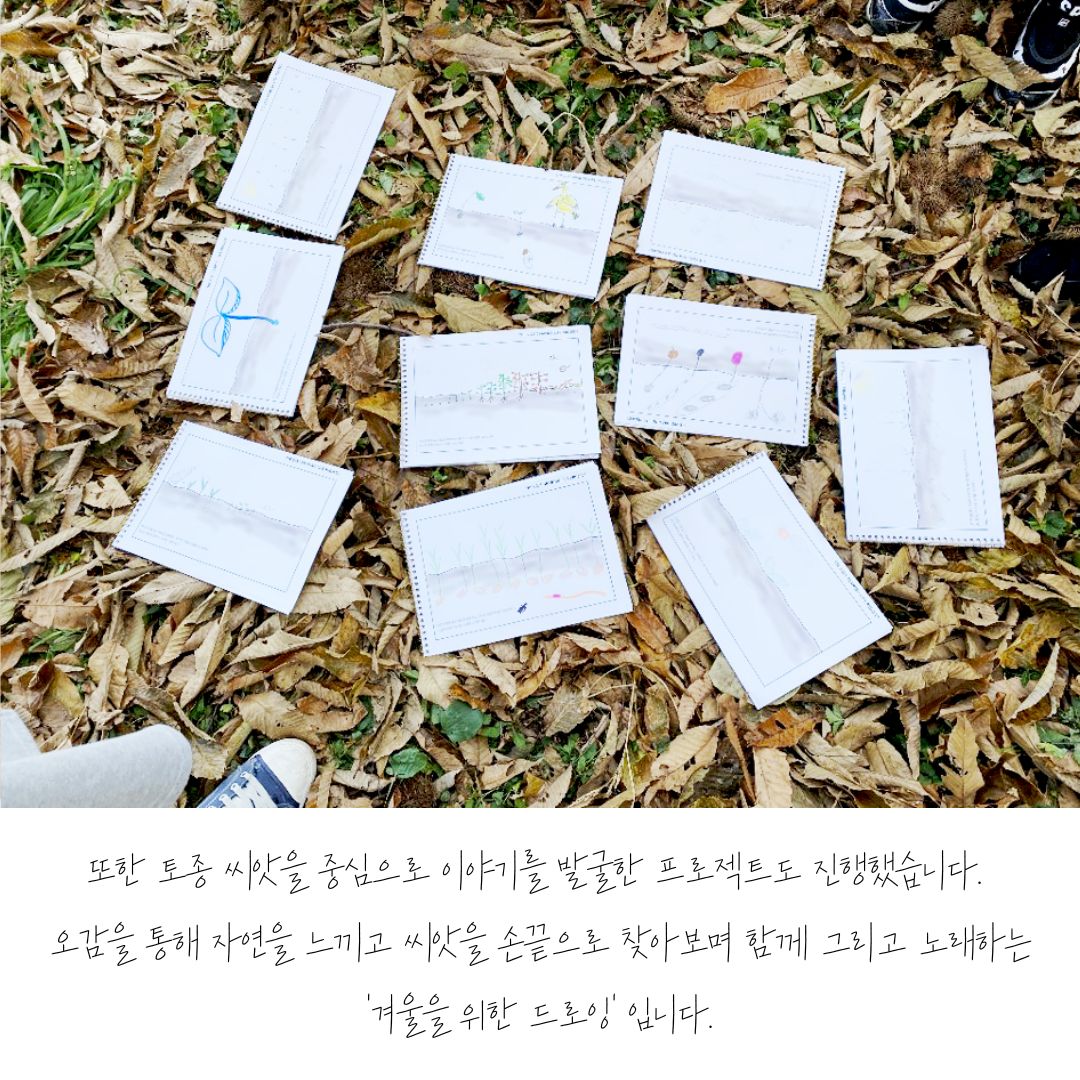 또한 토종 씨앗을 중심으로 이야기를 발굴한 프로젝트도 진행했습니다.
오감을 통해 자연을 느끼고 씨앗을 손끝으로 찾아보며 함께 그리고 노래하는
'겨울을 위한 드로잉' 입니다.